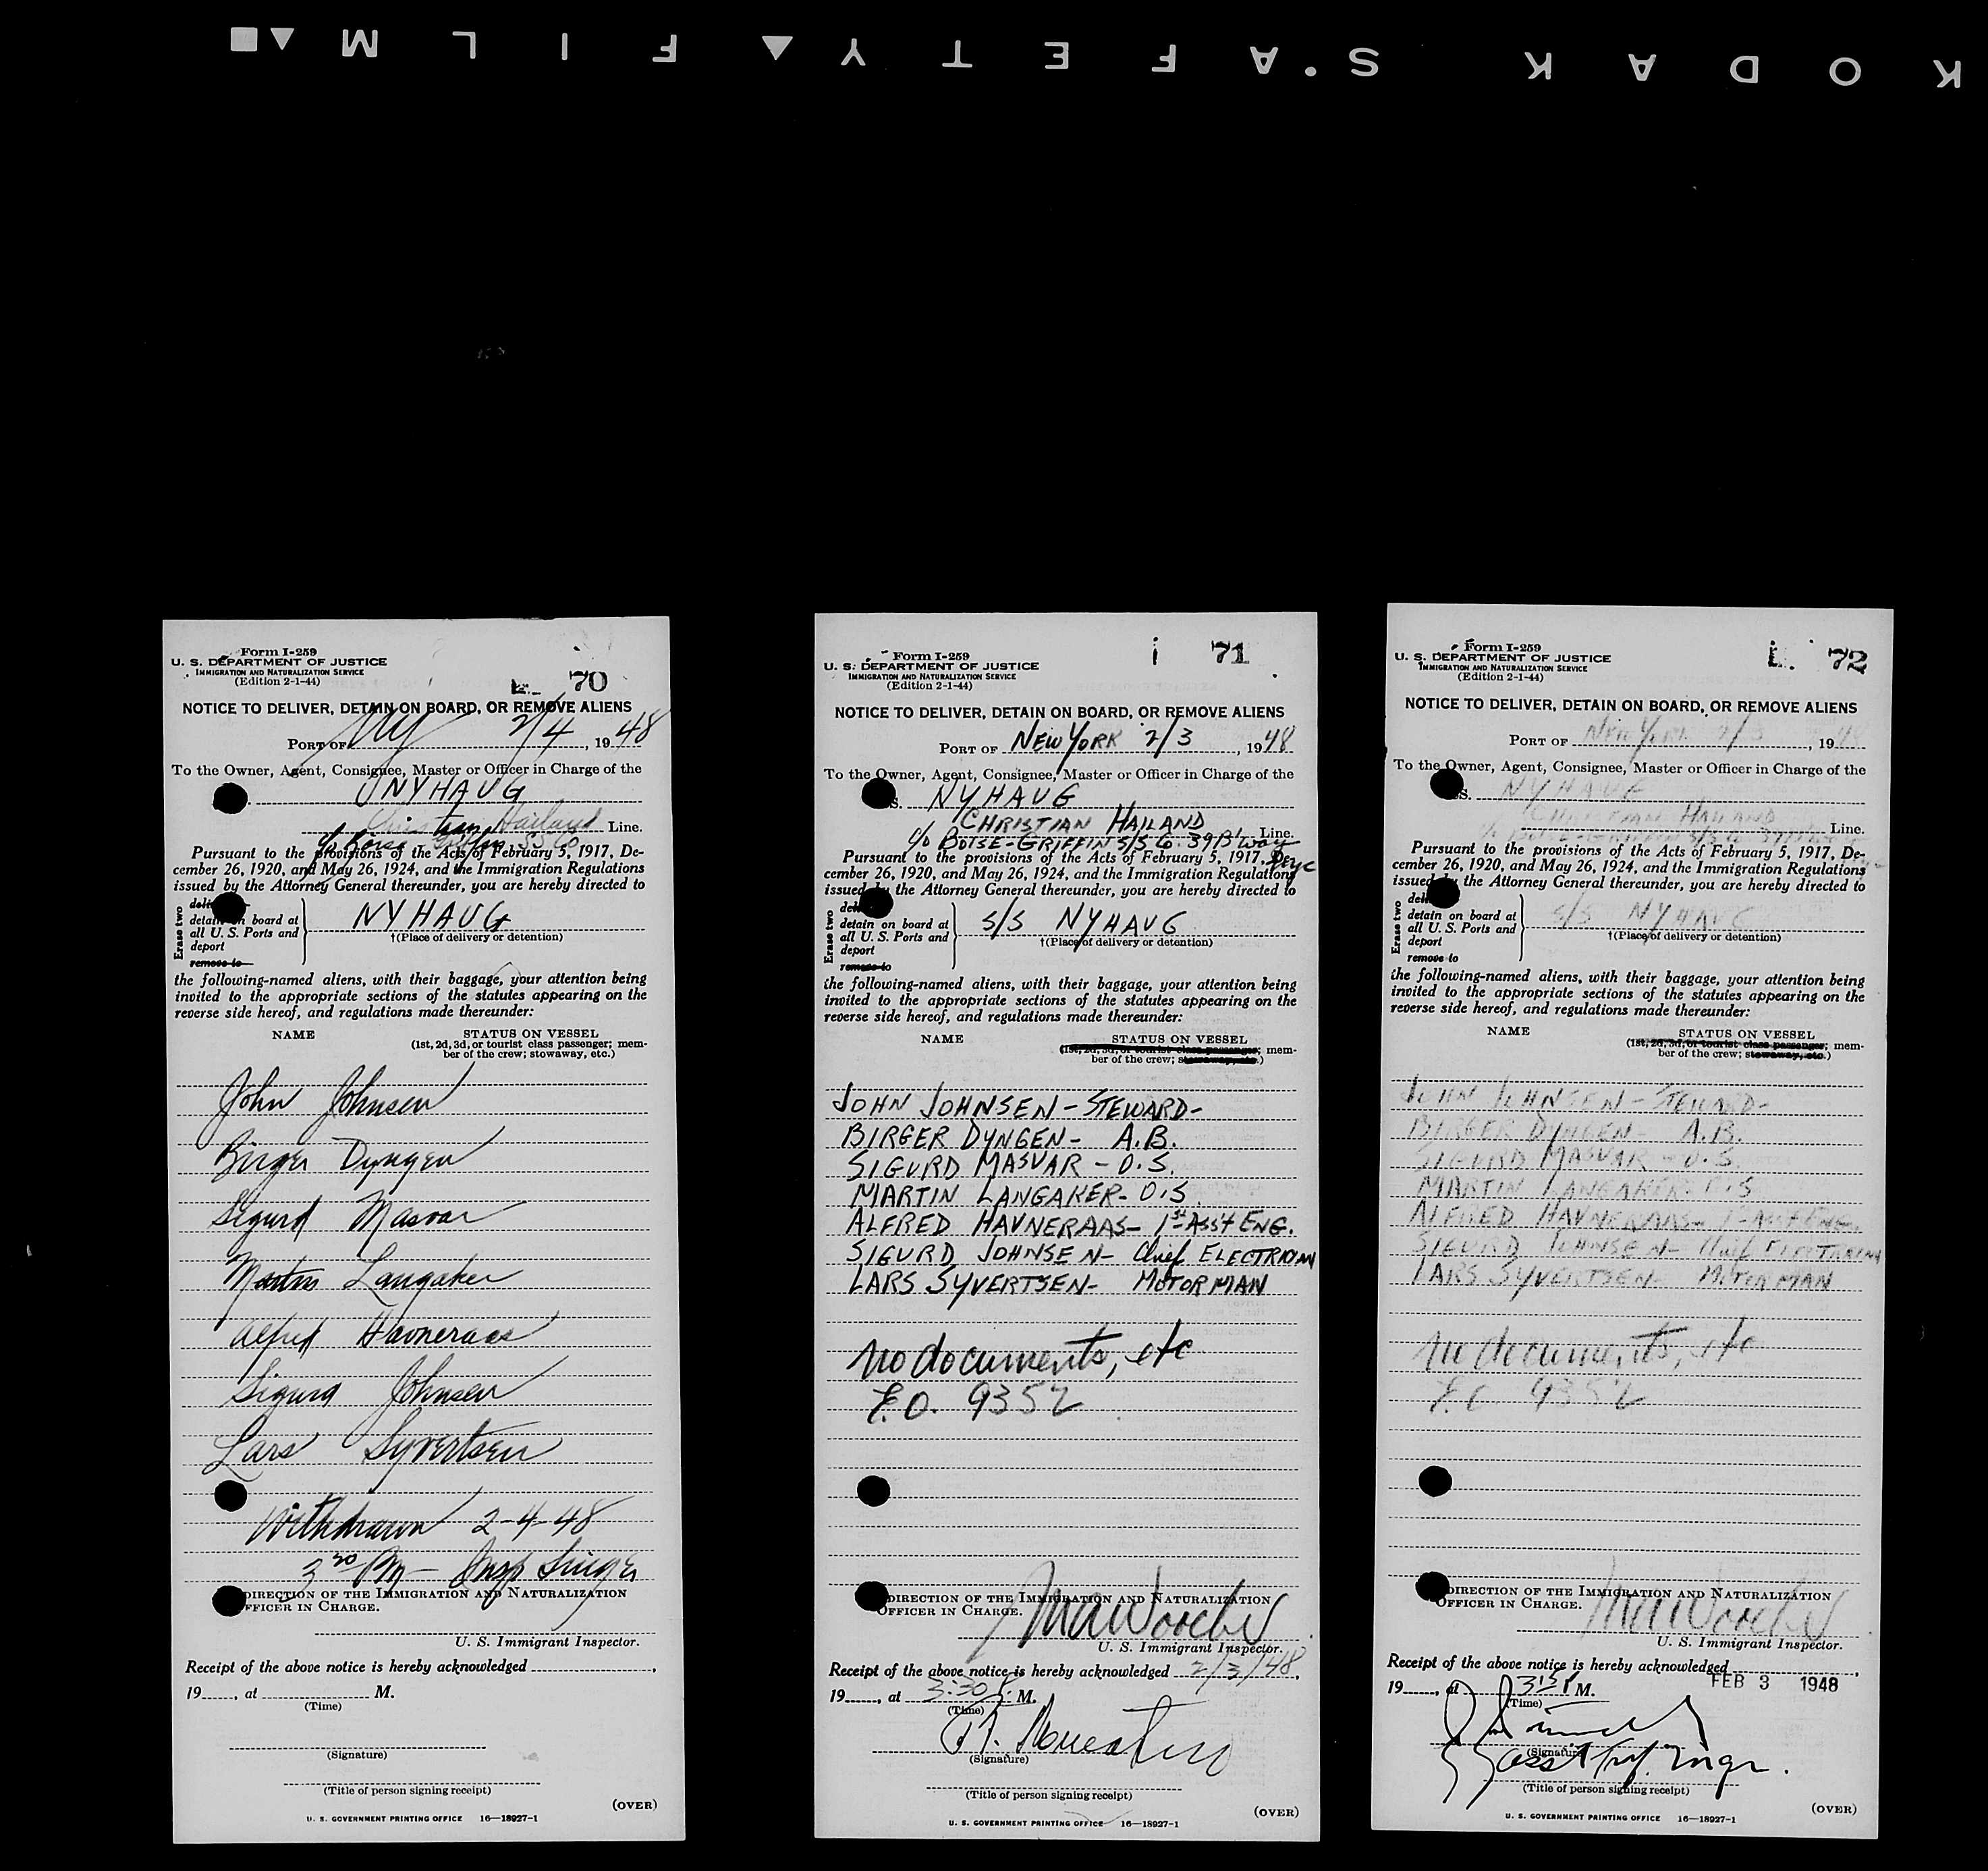 KODAK SAFETY FILM
Form I-259
U. S. DEPARTMENT OF JUSTICE
IMMIGRATION AND NATURALIZATION SERVICE
(Edition 2-1-44)
70
NOTICE TO DELIVER, DETAIN ON BOARD, OR REMOVE ALIENS
PORT OF NY 2/4, 1948
To the Owner, Agent, Consignee, Master or Officer in Charge of the
NYHAUG
Christian Hailand Line.
c/o Boise Griffin SS Co
Pursuant to the provisions of the Acts of February 5, 1917, De-
cember 26, 1920, and May 26, 1924, and the Immigration Regulations
issued by the Attorney General thereunder, you are hereby directed to
Erase two
detain on board at
all U. S. Ports and
deport
remove to
NYHAUG
†(Place of delivery or detention)
the following-named aliens, with their baggage, your attention being
invited to the appropriate sections of the statutes appearing on the
reverse side hereof, and regulations made thereunder:
NAME STATUS ON VESSEL
(1st, 2d, 3d, or tourist class passenger; mem-
ber of the crew; stowaway, etc.)
John Johnsen
Birger Dyngen
Sigurd Masvar
Martin Langaker
Alfred Havneraas
Sigurd Johnsen
Lars Syvertsen
Withdrawn 2-4-48
3 30 PM - Insp Singer
DIRECTION OF THE IMMIGRATION AND NATURALIZATION
OFFICER IN CHARGE.
U. S. Immigrant Inspector.
Receipt of the above notice is hereby acknowledged
19 , at M.
(Time)
(Signature)
(Title of person signing receipt)
(OVER)
U. S. GOVERNMENT PRINTING OFFICE 16—18927-1
Form I-259
U. S. DEPARTMENT OF JUSTICE
IMMIGRATION AND NATURALIZATION SERVICE
(Edition 2-1-44)
71
NOTICE TO DELIVER, DETAIN ON BOARD, OR REMOVE ALIENS
PORT OF NEW YORK 2/3, 1948
To the Owner, Agent, Consignee, Master or Officer in Charge of the
S. NYHAUG
CHRISTIAN HAILAND Line.
c/o BOISE-GRIFFIN S/S Co. 39 B'way
Pursuant to the provisions of the Acts of February 5, 1917, De-
cember 26, 1920, and May 26, 1924, and the Immigration Regulations
issued by the Attorney General thereunder, you are hereby directed to
Erase two
detain on board at
all U. S. Ports and
deport
remove to
S/S NYHAUG
†(Place of delivery or detention)
the following-named aliens, with their baggage, your attention being
invited to the appropriate sections of the statutes appearing on the
reverse side hereof, and regulations made thereunder:
NAME STATUS ON VESSEL
(1st, 2d, 3d, or tourist class passenger; mem-
ber of the crew; stowaway, etc.)
JOHN JOHNSEN - STEWARD-
BIRGER DYNGEN- A.B.
SIGURD MASVAR - O.S.
MARTIN LANGAKER- O.S.
ALFRED HAVNERAAS- 1st ASS'T ENG.
SIGURD JOHNSEN- Chief ELECTRICIAN
LARS SYVERTSEN- MOTORMAN
no documents, etc
E.O. 9352
DIRECTION OF THE IMMIGRATION AND NATURALIZATION
OFFICER IN CHARGE.
U. S. Immigrant Inspector.
Receipt of the above notice is hereby acknowledged 2/3/48,
19 , at 3:30 P. M.
(Time)
(Signature)
(Title of person signing receipt)
(OVER)
U. S. GOVERNMENT PRINTING OFFICE 16—18927-1
Form I-259
U. S. DEPARTMENT OF JUSTICE
IMMIGRATION AND NATURALIZATION SERVICE
(Edition 2-1-44)
72
NOTICE TO DELIVER, DETAIN ON BOARD, OR REMOVE ALIENS
PORT OF NEW YORK 2/3, 1948
To the Owner, Agent, Consignee, Master or Officer in Charge of the
S. NYHAUG
CHRISTIAN HAILAND Line.
c/o BOISE-GRIFFIN S/S Co. 39 B'way
Pursuant to the provisions of the Acts of February 5, 1917, De-
cember 26, 1920, and May 26, 1924, and the Immigration Regulations
issued by the Attorney General thereunder, you are hereby directed to
Erase two
detain on board at
all U. S. Ports and
deport
remove to
S/S NYHAUG
†(Place of delivery or detention)
the following-named aliens, with their baggage, your attention being
invited to the appropriate sections of the statutes appearing on the
reverse side hereof, and regulations made thereunder:
NAME STATUS ON VESSEL
(1st, 2d, 3d, or tourist class passenger; mem-
ber of the crew; stowaway, etc.)
JOHN JOHNSEN - STEWARD-
BIRGER DYNGEN- A.B.
SIGURD MASVAR - O.S.
MARTIN LANGAKER- O.S
ALFRED HAVNERAAS- 1st ASS'T ENG.
SIGURD JOHNSEN- Chief ELECTRICIAN
LARS SYVERTSEN- MOTORMAN
no documents, etc
E.O. 9352
DIRECTION OF THE IMMIGRATION AND NATURALIZATION
OFFICER IN CHARGE.
U. S. Immigrant Inspector.
Receipt of the above notice is hereby acknowledged
FEB 3 1948
19 , at M.
(Time)
(Signature)
(Title of person signing receipt)
(OVER)
U. S. GOVERNMENT PRINTING OFFICE 16—18927-1